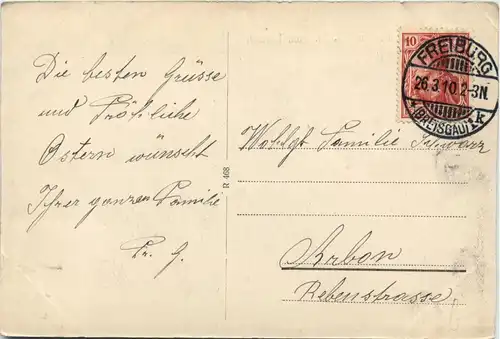 Die besten Grüsse
und Fröhliche
Ostern wünscht
Ihrer ganzen Familie
Fr. G.
R 468
10
FREIBURG
26.3.10.2-3N.
(BREISGAU) * k
Wohlgb. Familie Schwarz
Arbon
Rebenstrasse